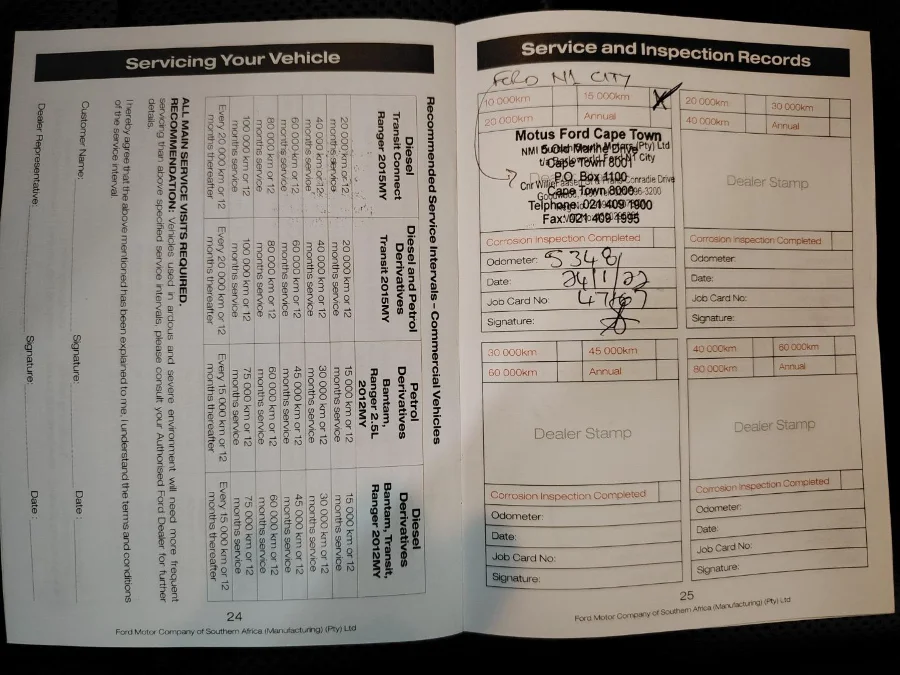 Servicing Your Vehicle
Recommended Service Intervals - Commercial Vehicles
Diesel
Transit Connect
Ranger 2015MY
Diesel and Petrol
Derivatives
Transit 2015MY
Petrol
Derivatives
Bantam,
Ranger 2.5L
2012MY
Diesel
Derivatives
Bantam, Transit,
Ranger 2012MY
20 000 km or 12
months service
20 000 km or 12
months service
15 000 km or 12
months service
15 000 km or 12
months service
40 000 km or 12
months service
40 000 km or 12
months service
30 000 km or 12
months service
30 000 km or 12
months service
60 000 km or 12
months service
60 000 km or 12
months service
45 000 km or 12
months service
45 000 km or 12
months service
80 000 km or 12
months service
80 000 km or 12
months service
60 000 km or 12
months service
60 000 km or 12
months service
100 000 km or 12
months service
100 000 km or 12
months service
75 000 km or 12
months service
75 000 km or 12
months service
Every 20 000 km or 12
months thereafter
Every 20 000 km or 12
months thereafter
Every 15 000 km or 12
months thereafter
Every 15 000 km or 12
months thereafter
ALL MAIN SERVICE VISITS REQUIRED.
RECOMMENDATION: Vehicles used in ardous and severe environment will need more frequent
servicing than above specified service intervals, please consult your Authorised Ford Dealer for further
details.
I hereby agree that the above mentioned has been explained to me. I understand the terms and conditions
of the service interval.
Customer Name: Signature: Date :
Dealer Representative: Signature: Date :
24
Ford Motor Company of Southern Africa (Manufacturing) (Pty) Ltd
Service and Inspection Records
FORD N1 CITY
10 000km 15 000km X
20 000km Annual
Motus Ford Cape Town
Cape Town 8001
P.O. Box 1100
Cape Town 8000
Telphone: 021 409 1900
Fax: 021 409 1995
Corrosion Inspection Completed
Odometer: 5348
Date: 24/1/22
Job Card No:
Signature:
20 000km 30 000km
40 000km Annual
Dealer Stamp
Corrosion Inspection Completed
Odometer:
Date:
Job Card No:
Signature:
30 000km 45 000km
60 000km Annual
Dealer Stamp
Corrosion Inspection Completed
Odometer:
Date:
Job Card No:
Signature:
40 000km 60 000km
80 000km Annual
Dealer Stamp
Corrosion Inspection Completed
Odometer:
Date:
Job Card No:
Signature:
25
Ford Motor Company of Southern Africa (Manufacturing) (Pty) Ltd